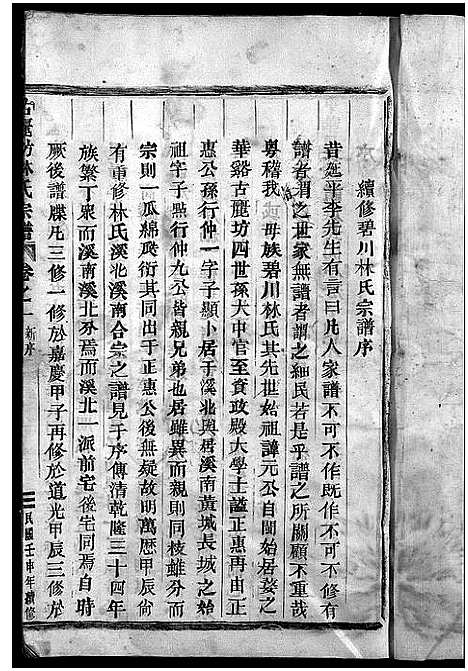 續修碧川林氏宗譜序
昔延平李先生有言曰凡人家譜不可不作既作不可不修有
譜者謂之世家無譜者謂之細民若是乎譜之所關顧不重哉
粵稽我 母族碧川林氏其先世始祖諱元公自閩始居婺之
華谿古麗坊四世孫大中官至資政殿大學士謚正惠再由正
惠公孫行仲一字子顯卜居于溪北與居溪南黃城長城之始
祖字子點行仲九公皆親兄弟也居雖異而親則同棱雖分而
宗則一瓜綿瓞衍其同出于正惠公後無疑故明萬厯甲辰尙
有重修林氏溪北溪南合宗之譜見于序傳清乾隆三十四年
族繁丁衆而溪南溪北分焉而溪北一派前宅後宅同焉自時
厥後譜牒凡三修一修於嘉慶甲子再修於道光甲辰三修於
古麗坊林氏宗譜 卷之一 新序
民國壬申年續修